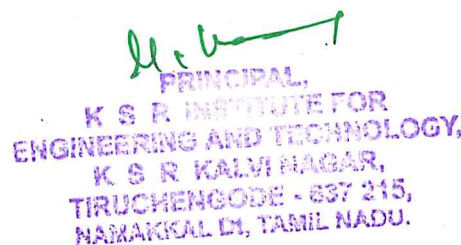 PRINCIPAL,
K S R INSTITUTE FOR
ENGINEERING AND TECHNOLOGY,
K S R KALVI NAGAR,
TIRUCHENGODE - 637 215,
NAMAKKAL Dt, TAMIL NADU.